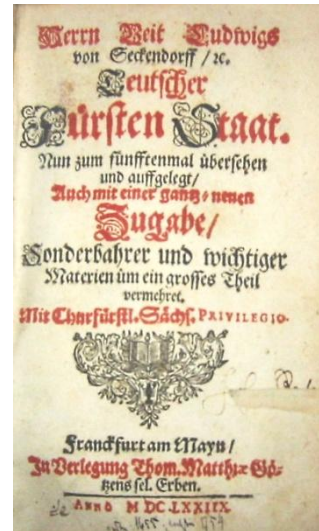 Herrn Veit Ludwigs
von Seckendorff / ꝛc.
Teutscher
Fürsten Staat.
Nun zum fünfftenmal übersehen
und auffgelegt /
Auch mit einer gantz⸗neuen
Zugabe /
Sonderbahrer und wichtiger
Materien üm ein grosses Theil
vermehret.
Mit Churfürstl. Sächs. PRIVILEGIO.
Franckfurt am Mayn /
In Verlegung Thom. Matthiæ Gö⸗
tzens sel. Erben.
ANNO M DC LXXIIX